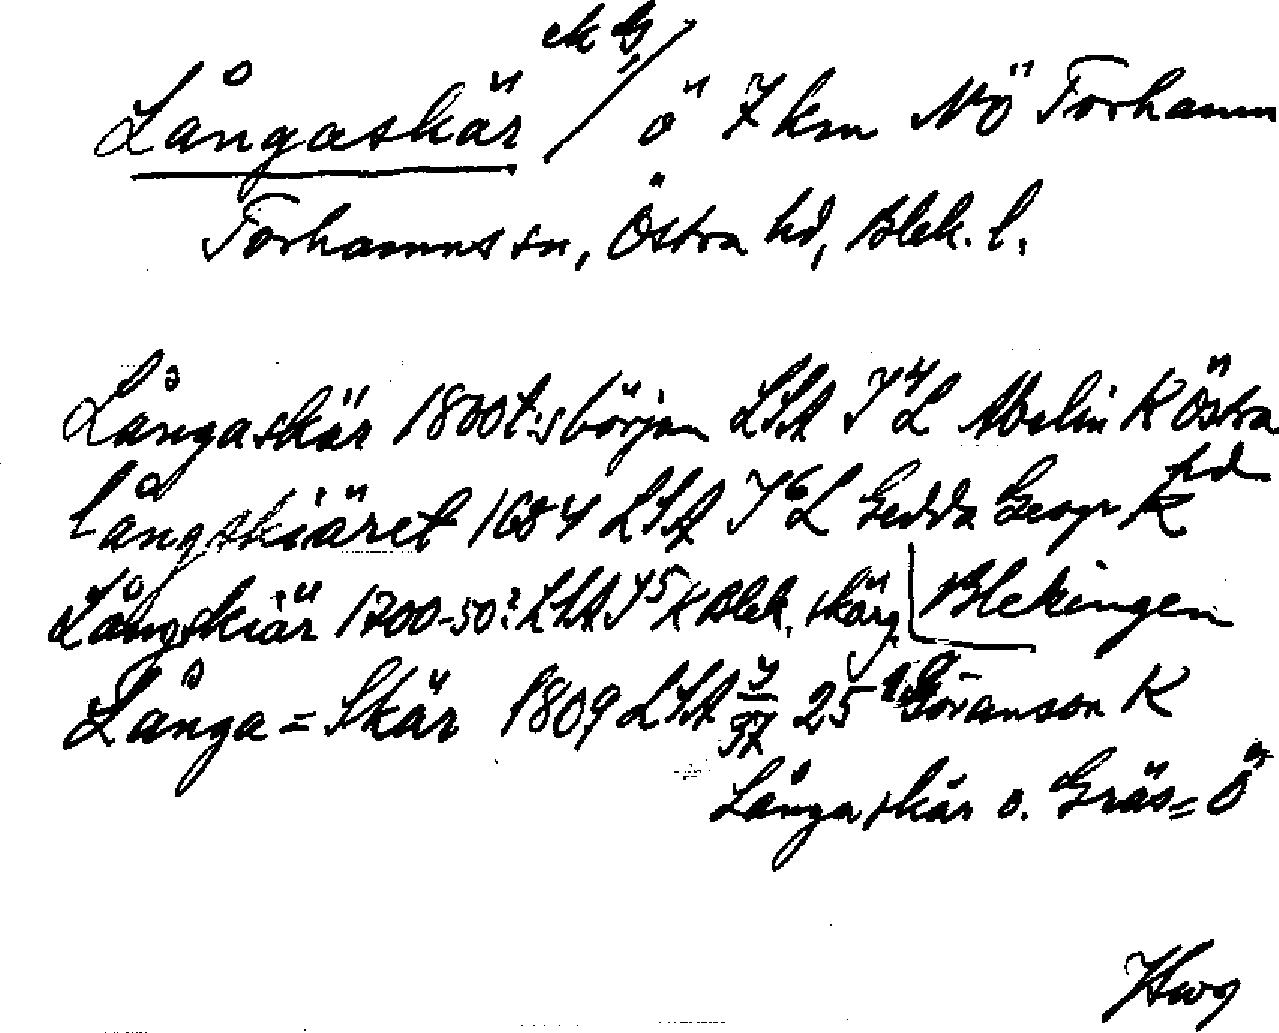 ek bl
Långaskär / ö 7 km NÖ Torhamn
Torhamns sn, Östra hd, Blek. l.
Långaskär 1800t:s början LSA I4L Abelin K Östra hd
Långskiäret 1684 LSA I6L Gedda Geogr K Blekingen
Långskiär 1700-50? LSA I5 K Blek. skärg
Långa=Skär 1809 LSA 25 Göranson K
Långaskär o. Gräs=Ö